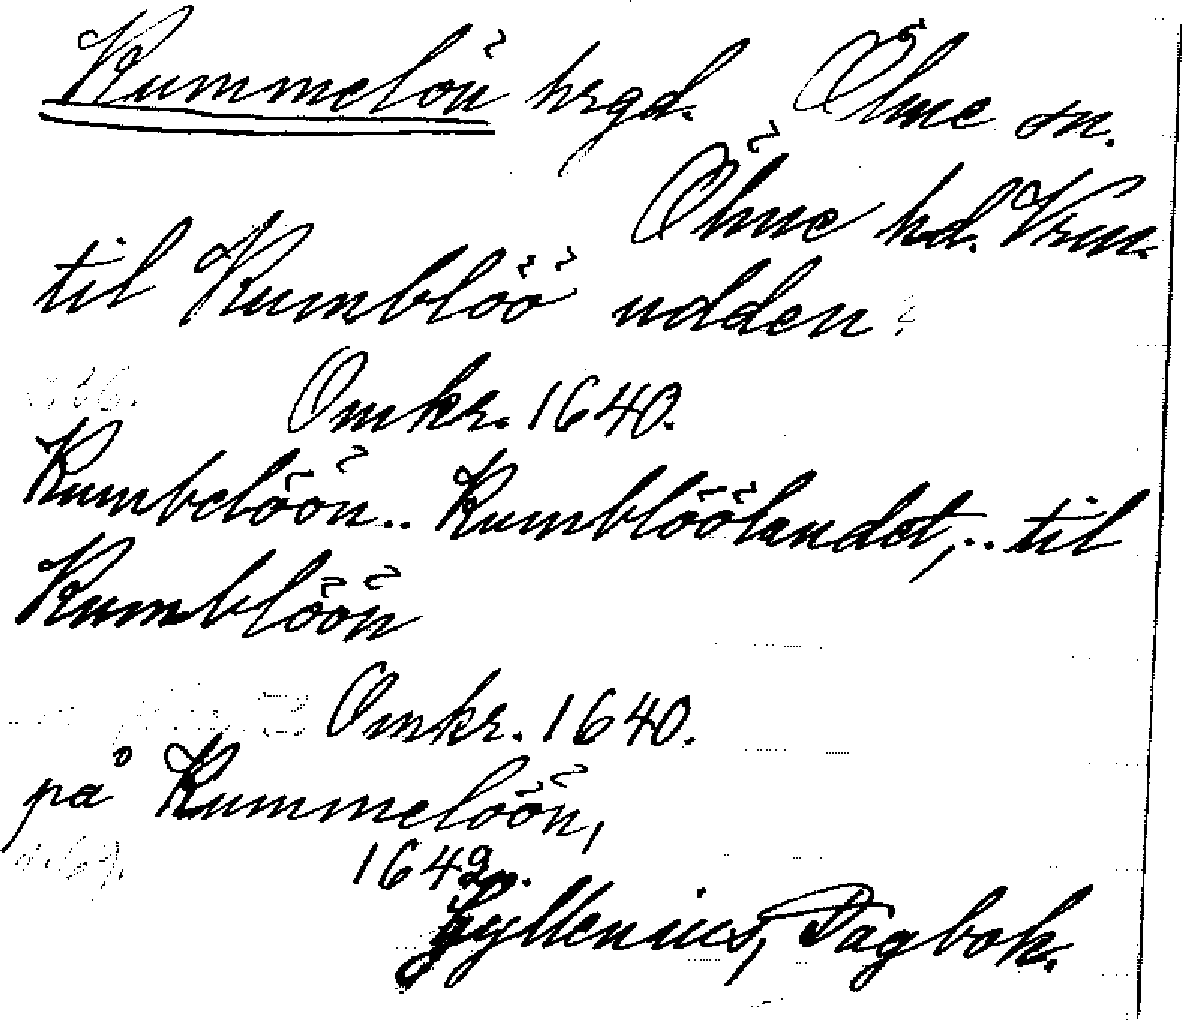 Kummelön hrgd. Ölme sn.
Ölme hd. Vrm.
til Kumblöö udden
Omkr. 1640.
Kumbelöön.. Kumblöölandet,.. til
Kumblöön
Omkr. 1640.
på Kummelöön,
1642.
Gyllenius, Dagbok.